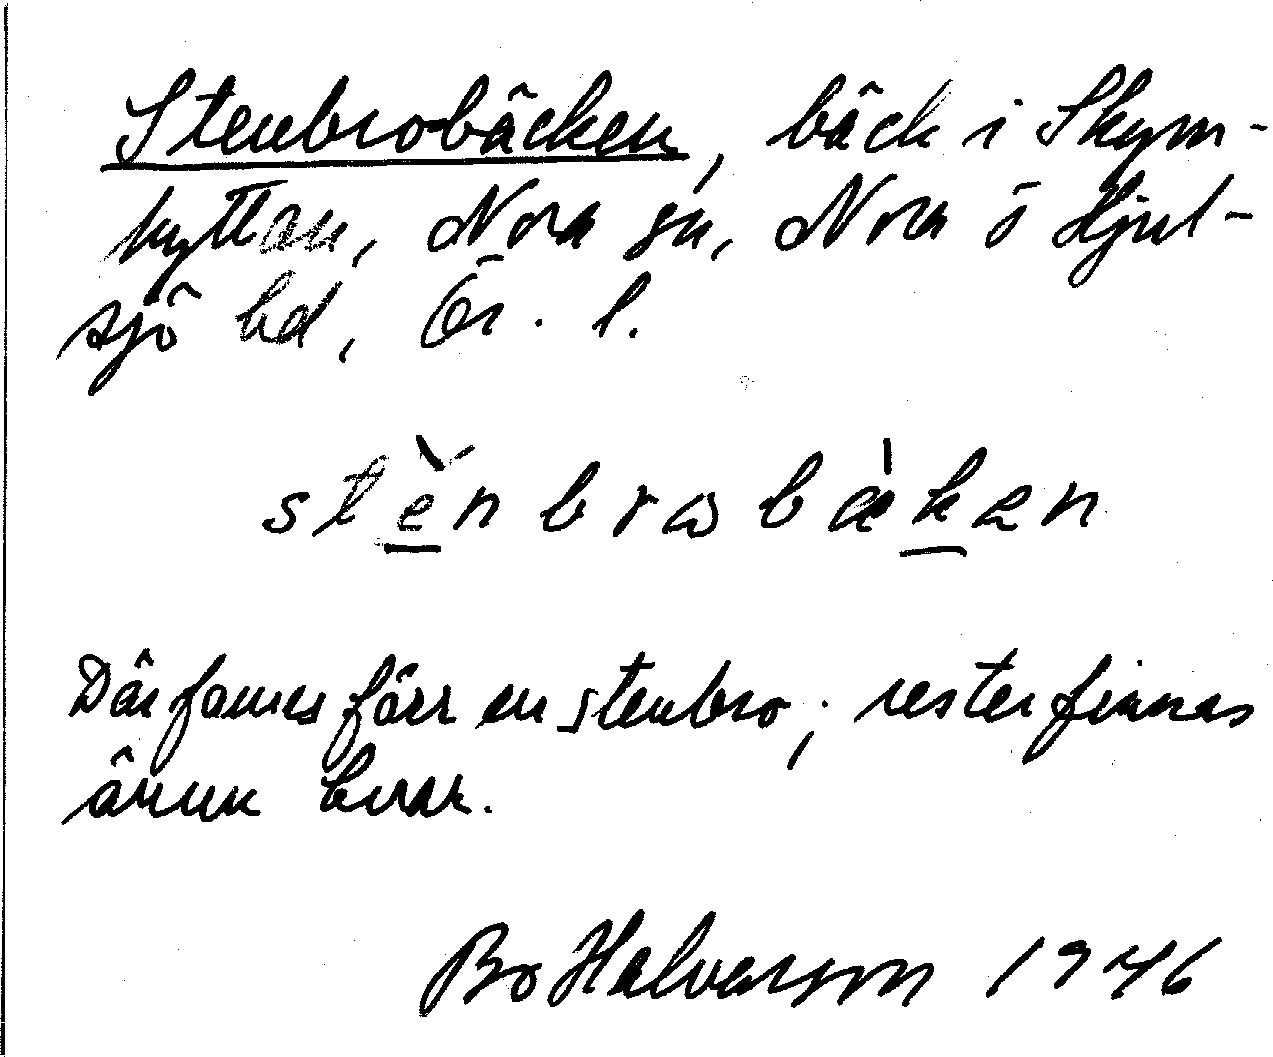 Stenbrobäcken, bäck i Skym-
hyttan, Nora sn, Nora ō Hjul-
sjö bd, Ör. l.
stè̆nbrωbæ̀kən
Där fanns förr en stenbro; rester finnas
ännu kvar.
Bo Halvarson 1946